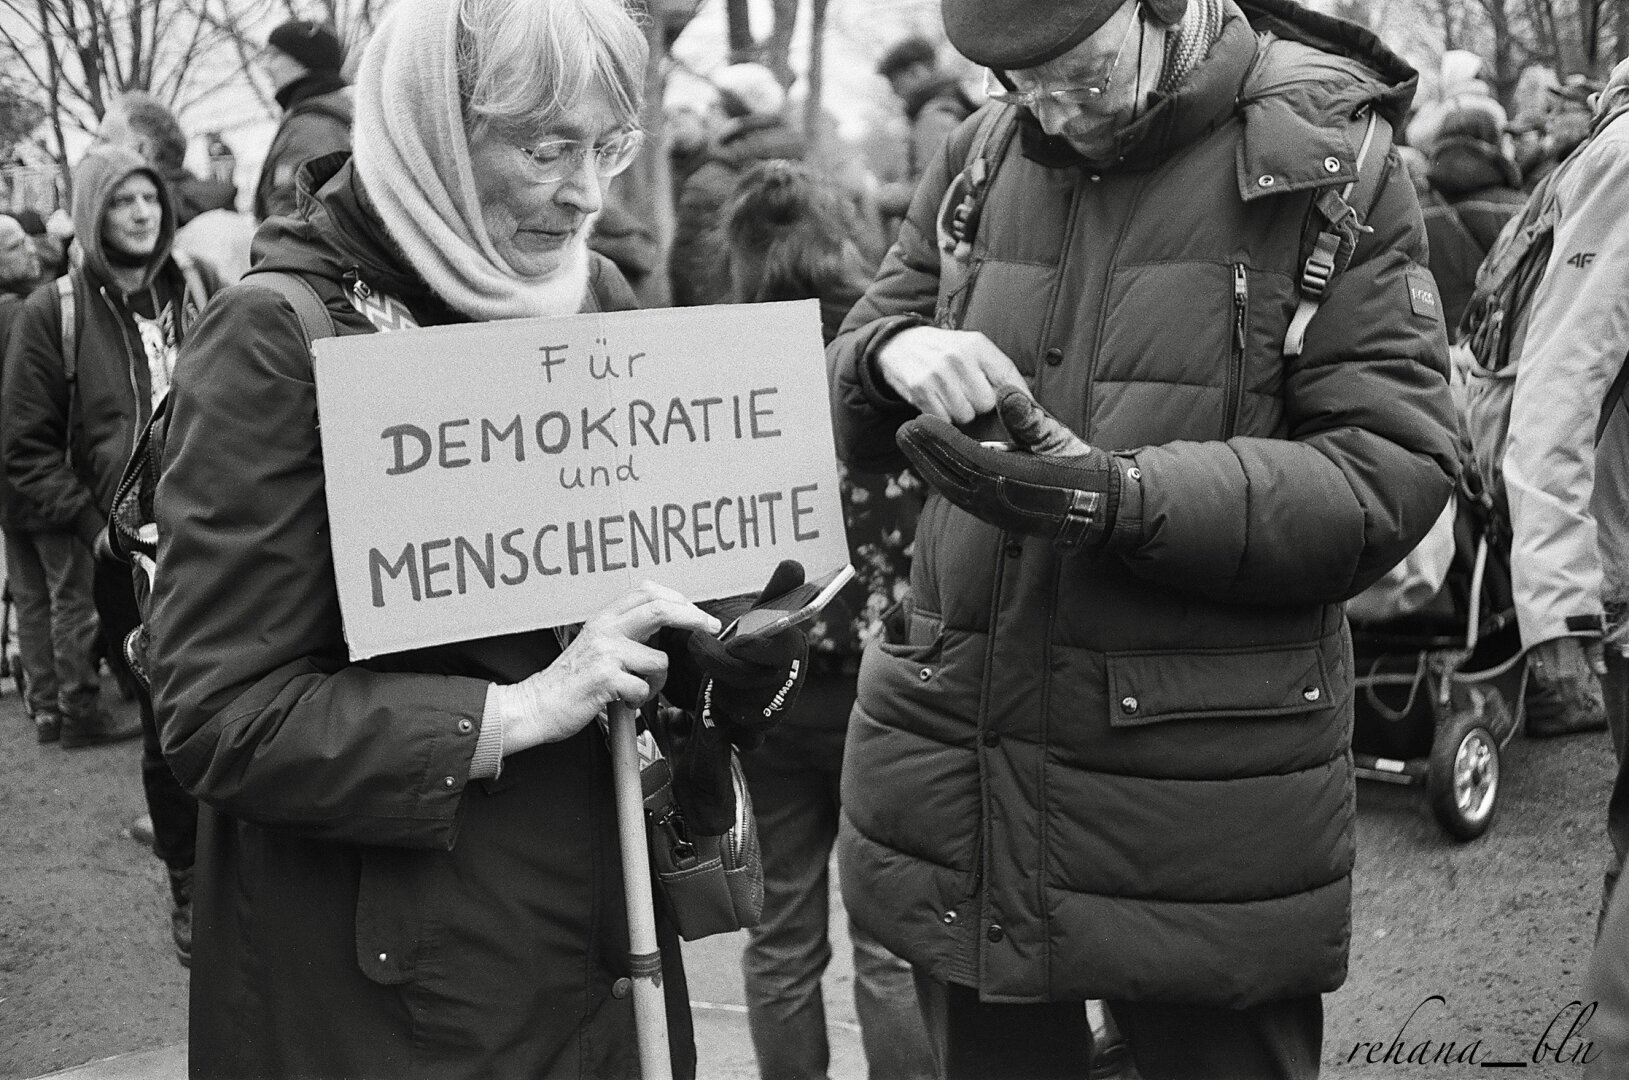 Für
DEMOKRATIE
und
MENSCHENRECHTE
4F
rehana_bln